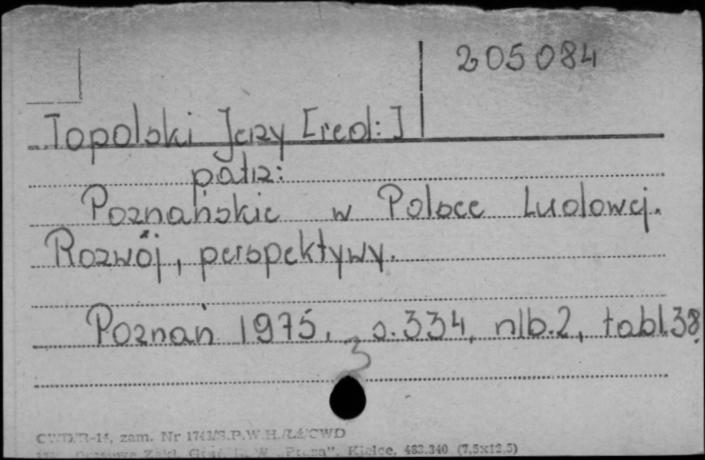 205084
Topolski Jerzy [red:]
patrz:
Poznańskie w Polsce Ludowej.
Rozwój, perspektywy.
Poznań 1975, s.334, nlb.2, tabl.38.
3
CWD/R-14, zam. Nr 1743/S.P.W.H./Łá/CWD
Kielce, 483.340 (7,5x12,5)